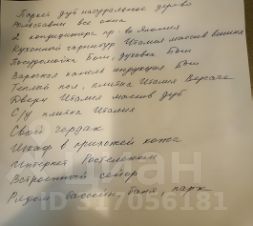 Паркет дуб натуральное дерево
все окна
2 кондиционера пр-во Япония
Кухонный гарнитур Италия массив вишня
Посудомойка Бош, духовка Бош
Варочная панель индукция Бош
Теплый пол, плитка Италия Версаче
Двери Италия массив дуб
С/у плитка Италия
Свой чердак
Шкаф в прихожей кожа
Интернет Ростелеком
Встроенный сейф
Рядом бассейн, баня, парк
ЦИАН
ID 317056181